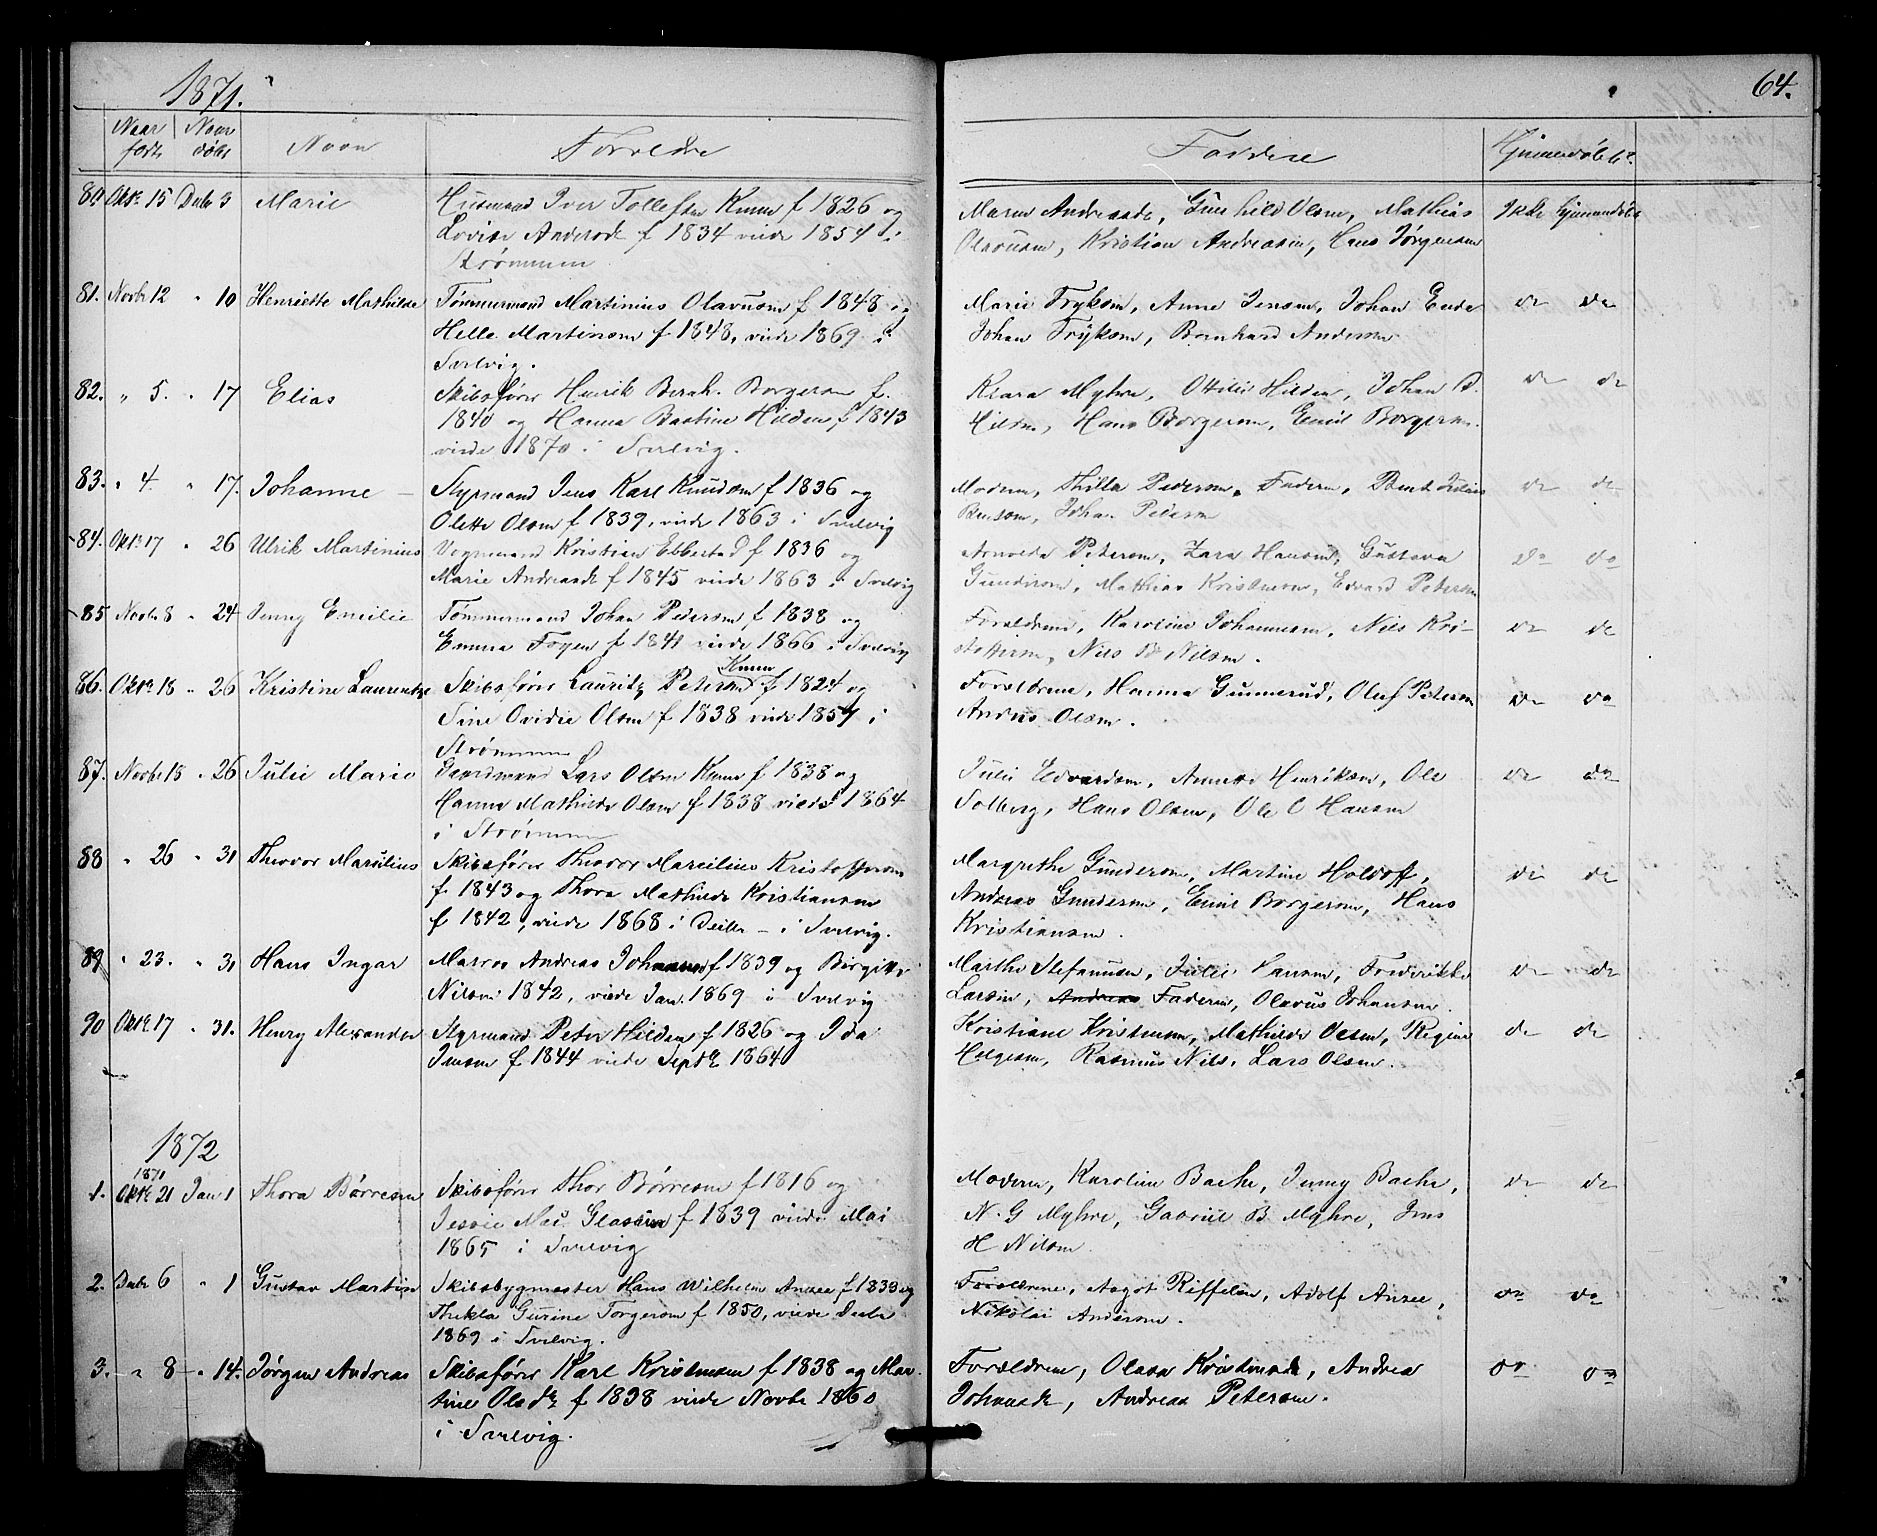 1871.
64.
Naar født Naar døbt Navn Forældre Faddere Hjemmedøbt
80 Oktr. 15 Decbr 3 Marie Husmand Iver Tollefsen Knem f 1826 og Maren Andreasdr, Gunhild Olsen, Mathias Ikke hjemmedøbt
Lovise Andersdr f 1834 viede 1854 i Olavusen, Kristian Andreasen, Hans Jørgensen
Strømmen
81. Novbr 12 " 10 Henriette Mathilde Tømmermand Martinius Olavusen f 1848 og Marie Fryksen, Anne Jensen, Johan Ende do do
Helle Martinsen f 1848, viede 1869 i Johan Fryksen, Bernhard Andersen
Svelvig.
82. " 5. " 17 Elias Skibsfører Henrik Bernh. Borgersen f. Klara Myhre, Ottilie Hilden, Johan D. do do
1840 og Hanna Bastine Hilden f 1843 Nilsen, Hans Borgersen, Emil Borgersen.
viede 1870 i Svelvig.
83. " 4. " 17. Johanne Styrmand Jens Karl Knudsen f 1836 og Moderen, Thilla Pedersen, Faderen, Bernt Julius do do
Olette Olsen f 1839, viede 1863 i Svelvig Bentsen, Johan Pedersen
84. Oktr. 17 " 26 Ulrik Martinius Vognmand Kristian Ebbestad f 1836 og Arnolda Petersen, Lara Hansen, Gustava do do
Marie Andreasdr f 1845 viede 1863 i Svelvig Gundersen, Mathias Kristensen, Edvard Petersen
85 Novbr 8 " 24 Jenny Emilie Tømmermand Johan Pedersen f 1838 og Forældrene, Karoline Johannesen, Nils Kri- do do
Emma Foyen f 1841 viede 1866 i Svelvig stoffersen, Nils B Nilsen.
86. Oktr. 18 " 26 Kristine Laurentze Skibsfører Lauritz Petersen Knem f 1824 og Forældrene, Hanna Gunnerud, Oluf Petersen do do
Sine Ovidie Olsen f 1838 viede 1857 i Andreas Olsen.
Strømmen
87. Novbr 15 " 26 Julie Marie Gaardmand Lars Olsen Knem f 1838 og Julie Edvardsen, Annette Henriksen, Ole do do
Hanne Mathilde Olsen f 1838 viede 1864 Solberg, Hans Olsen, Ole C Hansen
i Strømmen
88 " 26 " 31 Theodor Marcilius Skibsfører Theodor Marcilius Kristoffersen Margrethe Gundersen, Martine Holdoff, do do
f. 1843 og Thora Mathilde Kristiansen Andreas Gundersen, Emil Borgersen, Hans
f 1842, viede 1868 i Decbr - i Svelvig. Kristiansen.
89 " 23. " 31 Hans Ingar Matros Andreas Johansen f 1839 og Birgitte Marthe Stefansen, Julie Hansen, Frederikke do do
Nilsen 1842, viede Jan. 1869 i Svelvig Larsen, Andreas Faderen, Olavus Johansen.
90 Oktr. 17 " 31. Henry Alexander Styrmand Peter Hilden f 1826 og Ida Kristiane Kristensen, Mathilde Olsen, Regine do do
Jensen f 1844 viede Septbr 1864 Helgesen, Rasmus Nils. Lars Olsen.
1872
1871
1. Oktr. 21 Jan 1 Thora Børresen Skibsfører Thor Børresen f 1816 og Moderen, Karoline Bache, Jenny Bache, do do
Jessie Mac. Glasin f 1839 viede Mai N. G Myhre, Gabriel B Myhre, Jens
1865 i Svelvig H Nilsen.
2. Decbr 6 " 1 Gustav Martin Skibsbygmester Hans Wilhelm Anree f 1839 og Forældrene, Aagot Riffelsen, Adolf Anree, do do
Thekla Gurine Torgersen f 1850, viede Decbr Nikolai Andersen.
1869 i Svelvig.
3. " 8 " 14. Jørgen Andreas Skibsfører Karl Kristensen f 1838 og Mar- Forældrene, Olava Kristensdr, Andrea do do
tine Olsdr f 1838 viede Novbr 1860 Johnsdr, Andreas Petersen.
i Svelvig.